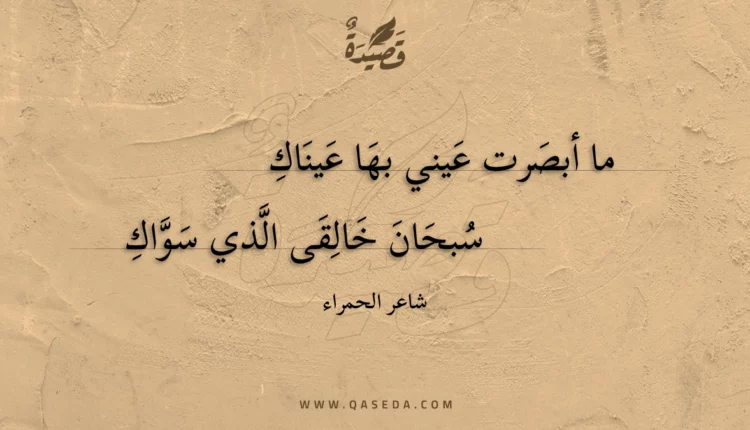 قَصِيْدَةٌ
ما أبصَرت عَيني بهَا عَينَاكِ
سُبحَانَ خَالِقَى الَّذي سَوَّاكِ
شاعر الحمراء
WWW.QASEDA.COM